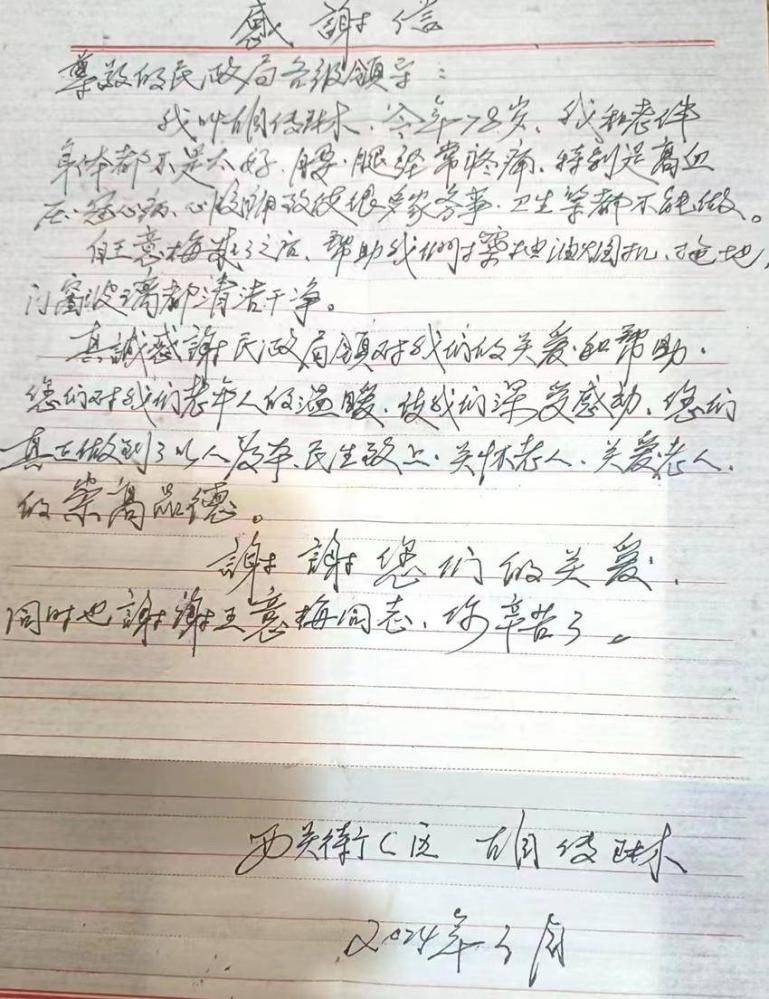 感謝信
尊敬的民政局各级領导：
我叫胡传珠，今年78岁、我和老伴
身体都不是太好、腰、腿经常疼痛、特别是高血
压、冠心病、心脏 致使很多家务事、卫生等都不能做。
自王意梅来了之后、帮助我们擦抽油烟机、拖地，
门窗玻璃都清洁干净。
真誠感謝民政局領对我们的关爱和帮助．
您们对我们老年人的温暖、使我们深受感动、您们
真正做到了以人为本、民生致上、关怀老人、关爱老人、
的崇高品德。
謝謝您们的关爱．
同时也謝謝王意梅同志、你辛苦了。
西关街C区 胡传珠
2024年3月